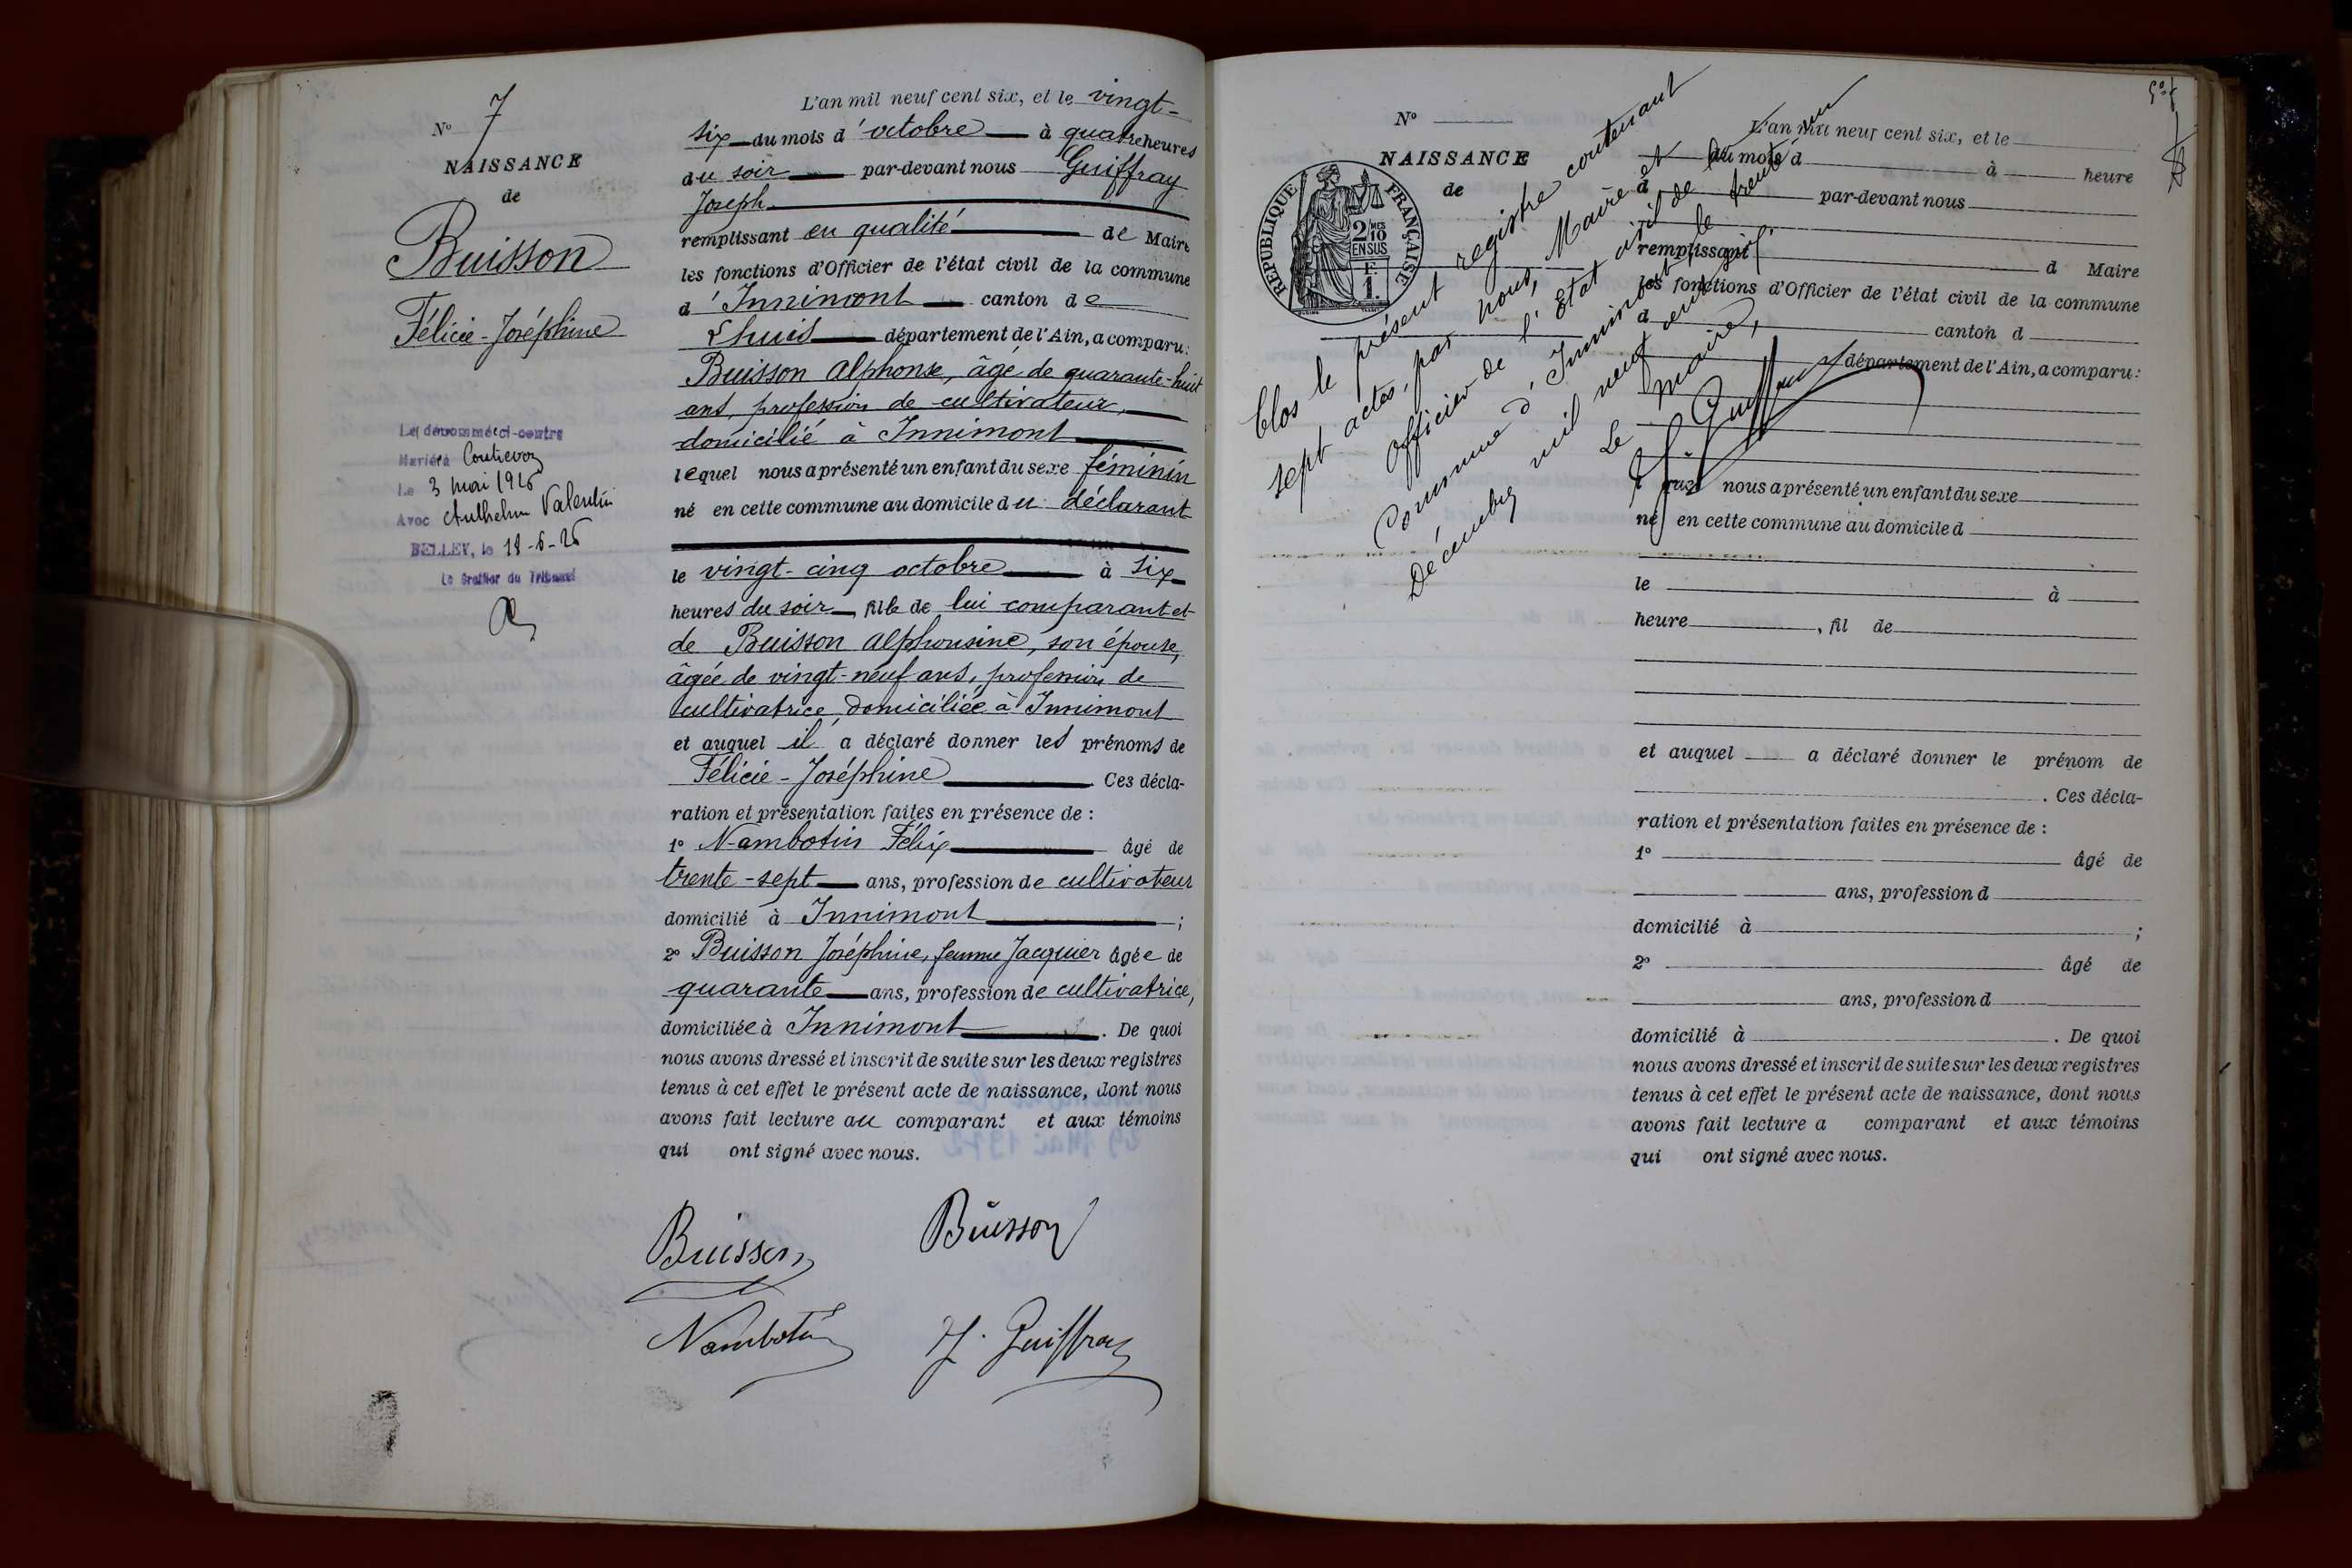 N° 7
NAISSANCE
de
Buisson
Félicie-Joséphine
Le dénommé ci-contre
Marié à Contrevoz
Le 3 mai 1926
Avec Anthelme Valentin
BELLEY, le 18-6-26
Le Greffier du Tribunal
L'an mil neuf cent six, et le vingt-
six du mois d'octobre à quatre heures
du soir par-devant nous Guiffray
Joseph
remplissant en qualité de Maire
les fonctions d'Officier de l'état civil de la commune
d'Innimont canton de
Lhuis département de l'Ain, a comparu:
Buisson Alphonse, âgé de quarante-huit
ans, profession de cultivateur,
domicilié à Innimont
lequel nous a présenté un enfant du sexe féminin
né en cette commune au domicile du déclarant
le vingt-cinq octobre à six
heures du soir, fille de lui comparant et
de Buisson Alphonsine, son épouse,
âgée de vingt-neuf ans, profession de
cultivatrice, domiciliée à Innimont
et auquel il a déclaré donner les prénoms de
Félicie-Joséphine. Ces décla-
ration et présentation faites en présence de :
1° Nambotin Félix âgé de
trente-sept ans, profession de cultivateur
domicilié à Innimont ;
2° Buisson Joséphine, femme Jacquier âgée de
quarante ans, profession de cultivatrice,
domiciliée à Innimont. De quoi
nous avons dressé et inscrit de suite sur les deux registres
tenus à cet effet le présent acte de naissance, dont nous
avons fait lecture au comparant et aux témoins
qui ont signé avec nous.
Buisson Buisson
Nambotin J. Guiffray
N°
NAISSANCE
de
RÉPUBLIQUE FRANÇAISE
2/10 MES
EN SUS
F.
1.
Clos le présent registre contenant
sept actes, par nous, Maire et
Officier de l'Etat civil de la
Commune d'Innimont, le trente un
Décembre mil neuf cent six.
Le Maire,
J. Guiffray
L'an mil neuf cent six, et le
du mois d à heure
d par-devant nous
remplissant d Maire
les fonctions d'Officier de l'état civil de la commune
d canton d
département de l'Ain, a comparu:
l quel nous a présenté un enfant du sexe
né en cette commune au domicile d
le à
heure , fil de
et auquel a déclaré donner le prénom de
. Ces décla-
ration et présentation faites en présence de :
1° âgé de
ans, profession d
domicilié à ;
2° âgé de
ans, profession d
domicilié à . De quoi
nous avons dressé et inscrit de suite sur les deux registres
tenus à cet effet le présent acte de naissance, dont nous
avons fait lecture a comparant et aux témoins
qui ont signé avec nous.